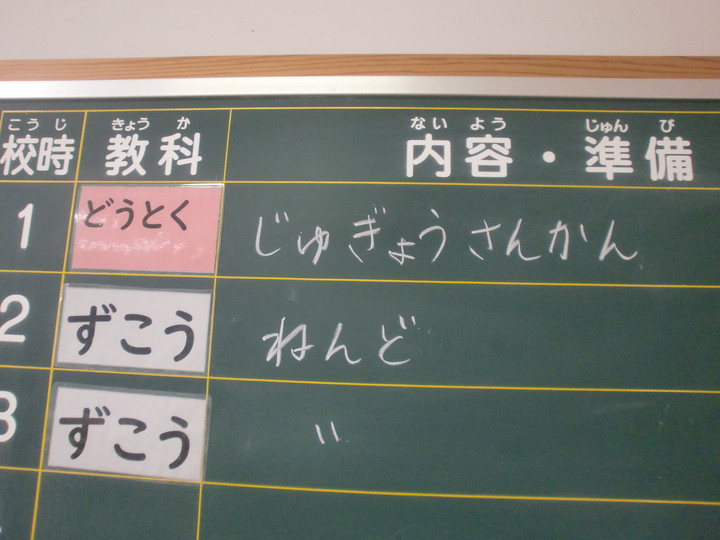 こうじ きょうか ないよう じゅんび
校時 教科 内容・準備
1 どうとく じゅぎょうさんかん
2 ずこう ねんど
3 ずこう 〃